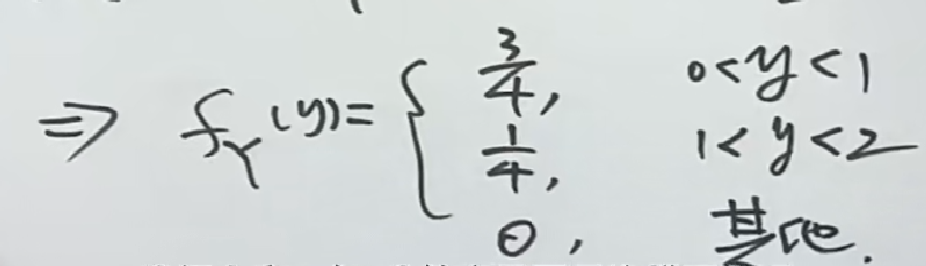 ⇒ f_Y(y) = { 3/4, 0<y<1
1/4, 1<y<2
0, 其他.